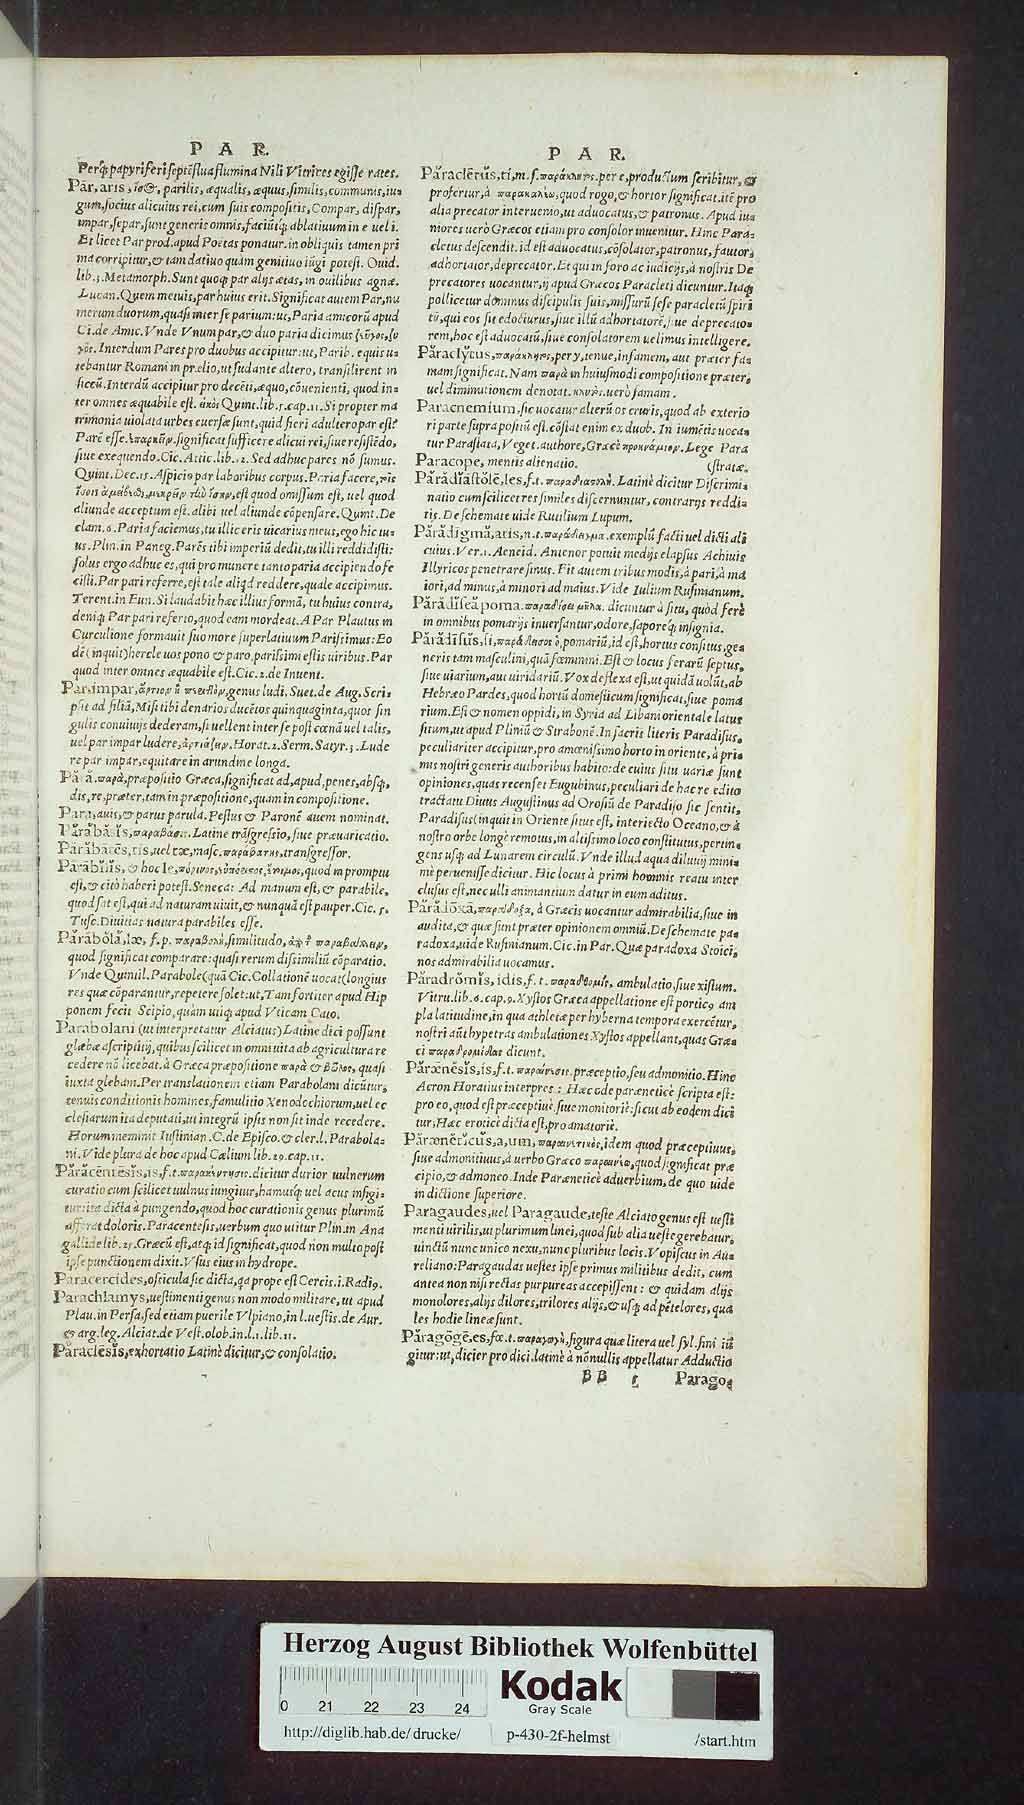 P A R.
Perq́; papyriferi septēflua flumina Nili Vitrices egisse rates.
Par, aris, parilis, æqualis, æquus, similis, communis, iu-
gum, socius alicuius rei, cum suis compositis, Compar, dispar,
impar, separ, sunt generis omnis, faciūtq́; ablatiuum in e uel i.
Et licet Par prod. apud Poëtas ponatur. in obliquis tamen pri
ma corripitur, & tam datiuo quàm genitiuo iūgi potest. Ouid.
lib. 3. Metamorph. Sunt quoq; par alijs ætas, in ouilibus agnæ.
Lucan. Quem metuis, par huius erit. Significat autem Par, nu
merum duorum, quasi inter se parium: ut, Paria amicorū apud
Ci. de Amic. Vnde Vnum par, & duo paria dicimus
Interdum Pares pro duobus accipitur: ut, Parib. equis u-
tebantur Romani in prælio, ut sudante altero, transilirent in
siccū. Interdū accipitur pro decēti, æquo, cōuenienti, quod in-
ter omnes æquabile est. Quint. lib. 5. cap. 11. Si propter ma
trimonia uiolata urbes euersæ sunt, quid fieri adultero par est?
Parē esse. significat sufficere alicui rei, siue resistēdo,
siue exequendo. Cic. Attic. lib. 12. Sed adhuc pares nō sumus.
Quint. Dec. 15. Aspicio par laboribus corpus. Paria facere,
est quod omissum est, uel quod
aliunde acceptum est. alibi uel aliunde cōpensare. Quint. De
clam. 6. Paria faciemus, tu illic eris uicarius meus, ego hic tu-
us. Plin. in Paneg. Parēs tibi imperiū dedit, tu illi reddidisti:
solus ergo adhuc es, qui pro munere tanto paria accipiendo fe
cisti. Par pari referre, est tale aliqd reddere, quale accipimus.
Terent. in Eun. Si laudabit hæc illius formā, tu huius contra,
deniq; Par pari referto, quod eam mordeat. A Par Plautus in
Curculione formauit suo more superlatiuum Parissimus: Eo
dē (inquit) hercle uos pono & paro, parissimi estis uiribus. Par
quod inter omnes æquabile est. Cic. 2. de Inuent.
Par impar, genus ludi. Suet. de Aug. Scri-
psit ad filiā, Misi tibi denarios ducētos quinquaginta, quos sin
gulis conuiuijs dederam, si uellent inter se post cœnā uel talis,
uel par impar ludere, Horat. 2. Serm. Satyr. 3. Lude
re par impar, equitare in arundine longa.
Para. παρὰ, præpositio Græca, significat ad, apud, penes, absq́;,
dis, re, præter, tam in præpositione, quam in compositione.
Para, auis, & parus parula. Festus & Paronē auem nominat.
Parabasis, παραβάσις. Latine trāsgressio, siue præuaricatio.
Parabates, tis, uel tæ, masc. παραβάτης, transgressor.
Parabilis, & hoc le, quod in promptu
est, & citò haberi potest. Seneca: Ad manum est, & parabile,
quod sat est, qui ad naturam uiuit, & nunquā est pauper. Cic. 5.
Tusc. Diuitias natura parabiles esse.
Parabola, læ, f. p. παραβολὴ, similitudo, ἀπὸ τ͂ παραβάλλειν,
quod significat comparare: quasi rerum dissimiliū cōparatio.
Vnde Quintil. Parabole (quā Cic. Collationē uocat) longius
res quæ cōparantur, repetere solet: ut, Tam fortiter apud Hip
ponem fecit Scipio, quàm utiq; apud Vticam Cato.
Parabolani (ut interpretatur Alciatus) Latine dici possunt
glæbæ ascriptitij, quibus scilicet in omni uita ab agricultura re
cedere nō licebat. à Græca præpositione παρὰ & βῶλος, quasi
iuxta glebam. Per translationem etiam Parabolam dicūtur,
tenuis conditionis homines, famulitio Xenodochiorum, uel ec
clesiarum ita deputati, ut integrū ipsis non sit inde recedere.
Horum meminit Iustinian. C. de Episco. & cler. l. Parabola-
ni. Vide plura de hoc apud Cælium lib. 29. cap. 11.
Paracentesis, is, f. t. παρακέντησις. dicitur durior uulnerum
curatio cum scilicet uulnus iungitur, hamusq́; uel acus infigi-
tur ita dicta à pungendo, quod hoc curationis genus plurimū
afferat doloris. Paracentesis, uerbum quo utitur Plin. in Ana
gallide lib. 25. Græcū est, atq; id significat, quod non multo post
ipse punctionem dixit. Vsus eius in hydrope.
Paracercides, ossicula sic dicta, qa prope est Cercis. i. Radi9.
Parachlamys, uestimenti genus non modo militare, ut apud
Plau. in Persa, sed etiam puerile Vlpiano, in l. uestis. de Aur.
& arg. leg. Alciat. de Vest. olob. in. l. 1. lib. 11.
Paraclesis, exhortatio Latinè dicitur, & consolatio.
P A R.
Paracletus, ti, m. s. παράκλητος. per e, productum scribitur, &
profertur, à παρακαλέω, quod rogo, & hortor significat. itē pro
alia precator interuenio, ut aduocatus, & patronus. Apud iu-
niores uerò Græcos etiam pro consolor inuenitur. Hinc Para-
cletus descendit. id est aduocatus, cōsolator, patronus, fautor,
adhortator, deprecator. Et qui in foro ac iudicijs, à nostris De
precatores uocantur, ij apud Græcos Paracleti dicuntur. Itaq;
pollicetur dominus discipulis suis, missurū sese paracletū spiri
tū, qui eos sit edocturus, siue illū adhortatorē, siue deprecato-
rem, hoc est aduocatū, siue consolatorem uelimus intelligere.
Paraclytus, παράκλυτος, per y, tenue, infamem, aut præter fa-
mam significat. Nam παρὰ in huiusmodi compositione præter,
uel diminutionem denotat. uerò famam.
Paracnemium. sic uocatur alterū os cruris, quod ab exterio
ri parte supra positū est. cōstat enim ex duob. In iumētis uoca-
tur Parastata, Veget. authore, Græcè προκνήμιον. Lege Para
Paracope, mentis alienatio. (stratæ.
Paradiastole, les, f. t. παραδιαστολὴ. Latinè dicitur Discrimi-
natio cum scilicet res similes discernuntur, contrarijs reddi-
tis. De schemate uide Rutilium Lupum.
Paradigma, atis, n. t. παράδειγμα. exemplū facti uel dicti ali
cuius. Ver. 1. Aeneid. Antenor potuit medijs elapsus Achiuis
Illyricos penetrare sinus. Fit autem tribus modis, à pari, à ma
iori, ad minus, à minori ad maius. Vide Iulium Rufinianum.
Paradisea poma. παραδίσεα μῆλα. dicuntur à situ, quòd ferè
in omnibus pomarijs inuersantur, odore, saporeq́; insignia.
Paradisus, si, παράδεισος ὁ, pomariū, id est, hortus consitus, ge-
neris tam masculini, quā fœminini. Est & locus ferarū septus,
siue uiarium, aut uiridariū. Vox deflexa est, ut quidā uolūt, ab
Hebræo Pardes, quod hortū domesticum significat, siue poma
rium. Est & nomen oppidi, in Syria ad Libani orientale latus
situm, ut apud Pliniū & Strabonē. In sacris literis Paradisus,
peculiariter accipitur, pro amœnissimo horto in oriente, à pri-
mis nostri generis authoribus habito: de cuius situ uariæ sunt
opiniones, quas recenset Eugubinus, peculiari de hac re edito
tractatu Diuus Augustinus ad Orosiū de Paradiso sic sentit,
Paradisus (inquit in Oriente situs est, interiecto Oceano, & à
nostro orbe longè remotus, in altissimo loco constitutus, pertin-
gens usq; ad Lunarem circulū. Vnde illud aqua diluuij mini-
mè peruenisse dicitur. Hic locus à primi hominis reatu inter
clusus est, nec ulli animantium datur in eum aditus.
Paradoxa, παράδοξα, à Græcis uocantur admirabilia, siue in
audita, & quæ sunt præter opinionem omniū. De schemate pa-
radoxa, uide Rufinianum. Cic. in Par. Quæ paradoxa Stoici,
nos admirabilia uocamus.
Paradromis, idis, f. t. παραδρομὶς, ambulatio, siue xistum.
Vitru. lib. 6. cap. 9. Xystos Græca appellatione est portic9 am
pla latitudine, in qua athletæ per hyberna tempora exercētur,
nostri aūt hypetras ambulationes Xystos appellant, quas Græ-
ci παραδρομίδας dicunt.
Parænesis, is, f. t. παραίνεσις. præceptio, seu admonitio. Hinc
Acron Horatius interpres: Hæc ode parænetice scripta est:
pro eo, quod est præceptiuè, siue monitoriè: sicut ab eodem dici
tur, Hæc eroticè dicta est, pro amatoriè.
Paræneticus, a, um, παραινετικὸς, idem quod præceptiuus,
siue admonitiuus, à uerbo Græco παραινέω, quod significat præ
cipio, & admoneo. Inde Parænetice aduerbium, de quo uide
in dictione superiore.
Paragaudes, uel Paragaude, teste Alciato genus est uesti
menti uirilis, ut plurimum linei, quod sub alia ueste gerebatur,
uinctū nunc unico nexu, nunc pluribus locis. Vopiscus in Au-
reliano: Paragaudas uestes ipse primus militibus dedit, cum
antea non nisi rectas purpureas accepissent: & quidam alijs
monolores, alijs dilores, trilores alijs, & usq; ad pētelores, qua
les hodie lineæ sunt.
Paragoge, es, fœ. t. παραγωγὴ, figura quæ litera uel syl. fini iū
gitur: ut, dicier pro dici. latinè à nōnullis appellatur Adductio
BB Parago-
Herzog August Bibliothek Wolfenbüttel
0 21 22 23 24
Kodak
Gray Scale
http://diglib.hab.de/drucke/ p-430-2f-helmst /start.htm